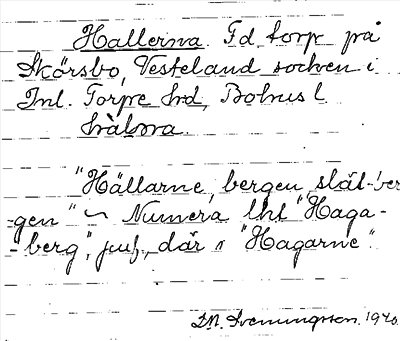 Hallerna. Fd torp på
Skörsbo, Vesteland socken i
Inl. Torpe hrd, Bohus l
hràlnra.
"Hällarne, bergen, slät-ber
-gen" ~ Numera lht "Haga-
-berg", juf., där i "Hagarne".
I.M. Svenungsson. 1920.